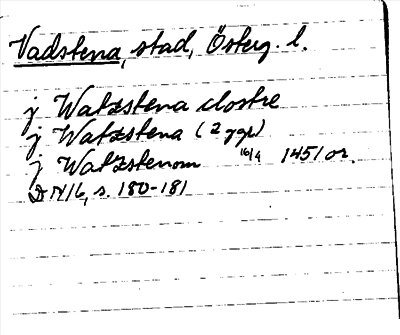 Vadstena, stad, Österg. l.
j Watzstena clostre
j Watzstena (2 ggr)
j Watzstenom 16/9 1451 or.
DN 16, s. 180-181